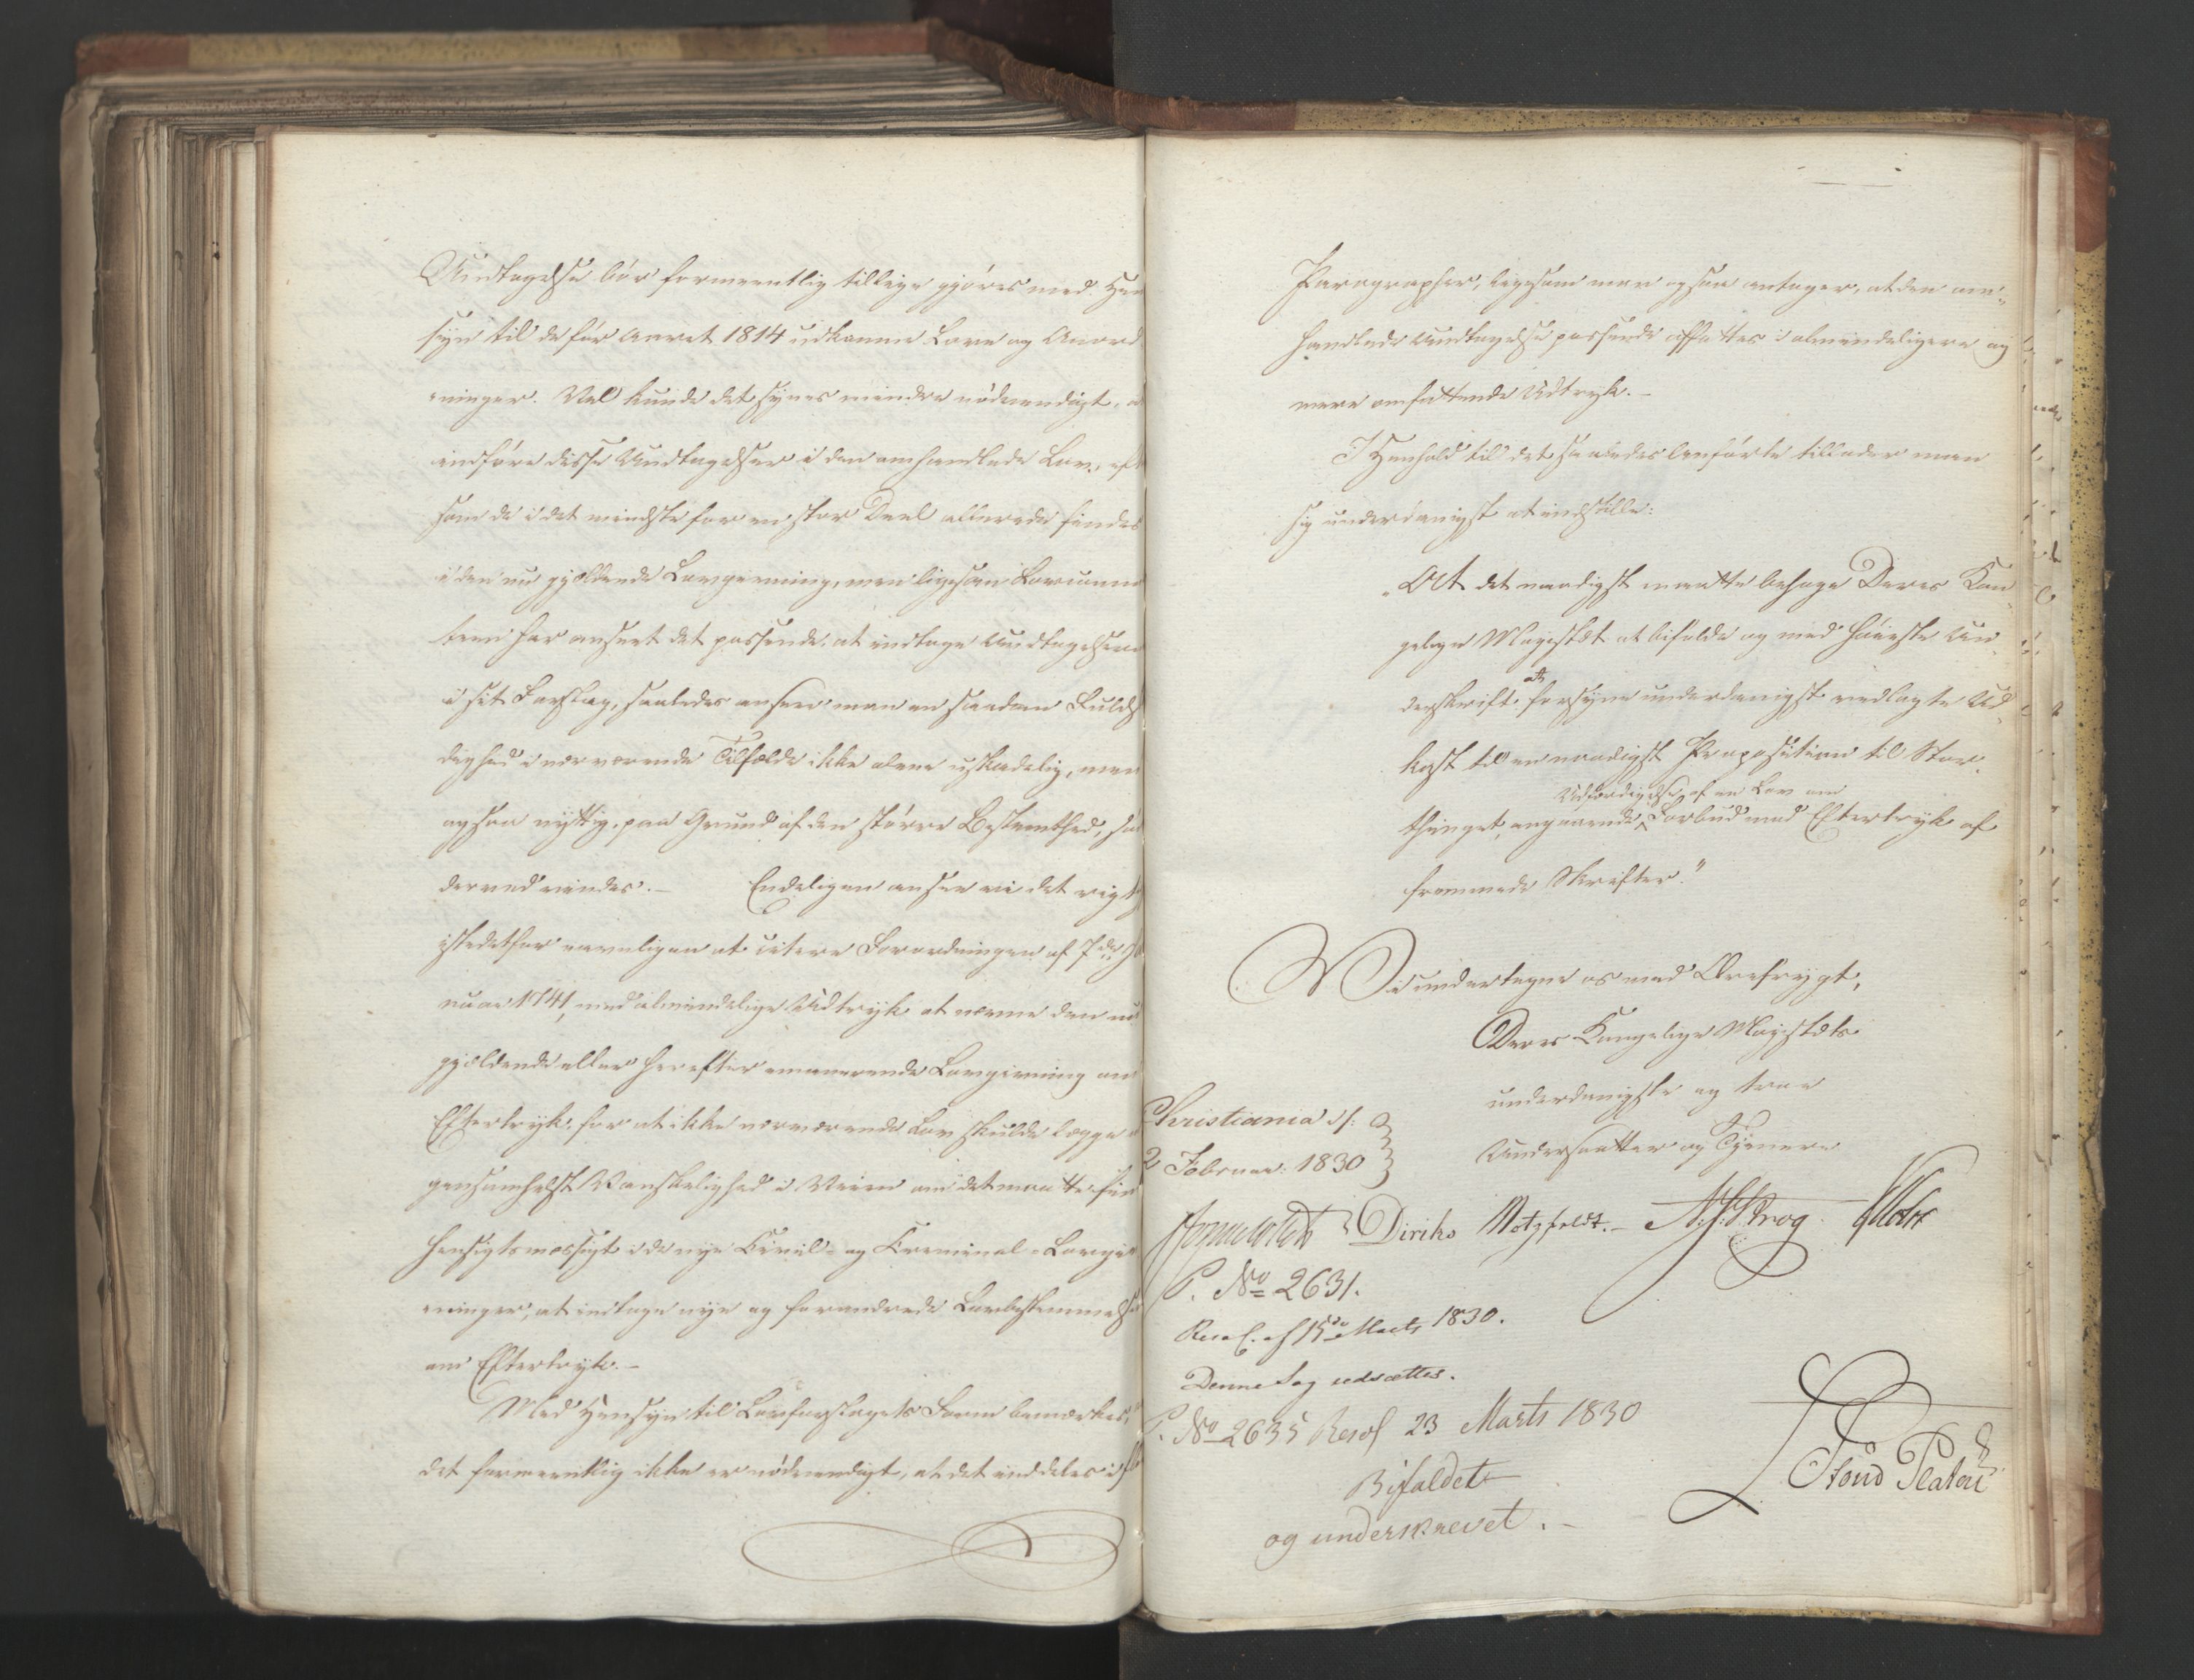 Undtagelse bør formeentlig tillige gjøres med Hen
syn til de før Aaret 1814 udkomne Love og Anord
ninger. Vel kunde det synes mindre nødvendigt, a
indføre disse Undtagelser i den omhandlede Lov, eft
som de i det mindste for en stor Deel allerede findes
i den nu gjældende Lovgivning, men ligesom Lovcomi
teen har anseet det passende, at indtage Undtagelsen
i sit Forslag, saaledes anseer man en saadan Fulds
dighed i nærværende Tilfælde ikke alene uskadelig, men
ogsaa nyttig, paa Grund af den større Bestemthed, so
derved vindes. — Endeligen ansee vi det rigt
istedetfor navnligen at citere Forordningen af 7de Ja
nuar 1741, med almindelige Udtryk at nævne den nu
gjældende eller herefter emanerende Lovgivning om
Eftertryk, for at ikke nærværende Lov skulde lægge
gensomhelst Vanskelighed i Veien om det maatte fin
hensigtsmæssigt i de nye Civil- og Criminal-Lovgiv
ninger, at indtage nye og forandrede Lovbestemmels
om Eftertryk. —
Med Hensyn til Lovforslagets Form bemærkes,
det formeentlig ikke er nødvendigt, at det inddeles i
Paragrapher, ligesom man ogsaa antager, at den om-
handlede Undtagelse passende affattes i almindeligere og
mere omfattende Udtryk. —
I Henhold til det saaledes Anførte tillader man
sig underdanigst at indstille:
"At det naadigst maatte behage Deres Kon
gelige Majestæt at bifalde og med høieste Un
derskrift at forsyne underdanigst vedlagte Ud
kast til en naadigst Proposition til Stor
thinget, angaaende Udfærdigelse af en Lov om Forbud mod Eftertryk af
fremmede Skrifter."
Vi undertegne os med Ærefrygt,
Deres Kongelige Majestæts
underdanigste og troe
Undersaatter og Tjenere
Christiania d:
2 Februar: 1830
Diriks Motzfeldt. — Krog.
P. No 2631.
Resol. af 15de Marts 1830.
Denne Sag udsættes.
P. No 2635 Resol 23 Marts 1830
Bifaldet
og underskrevet. —
Platou